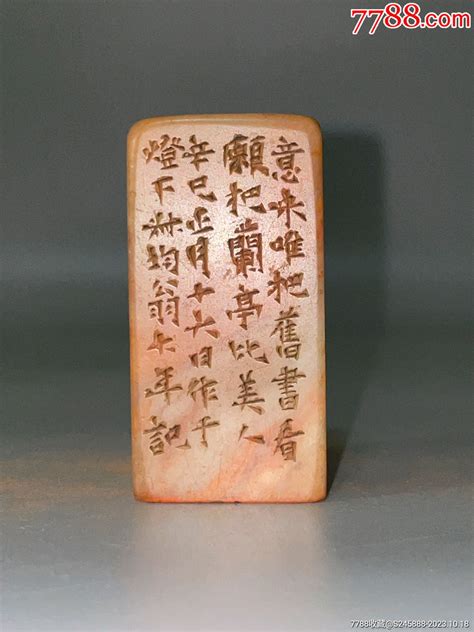 7788.com
意來唯把舊書看
願把蘭亭比美人
辛巳正月十六日作于
燈下均翁年記
7788收藏@S245888-2023.10.18